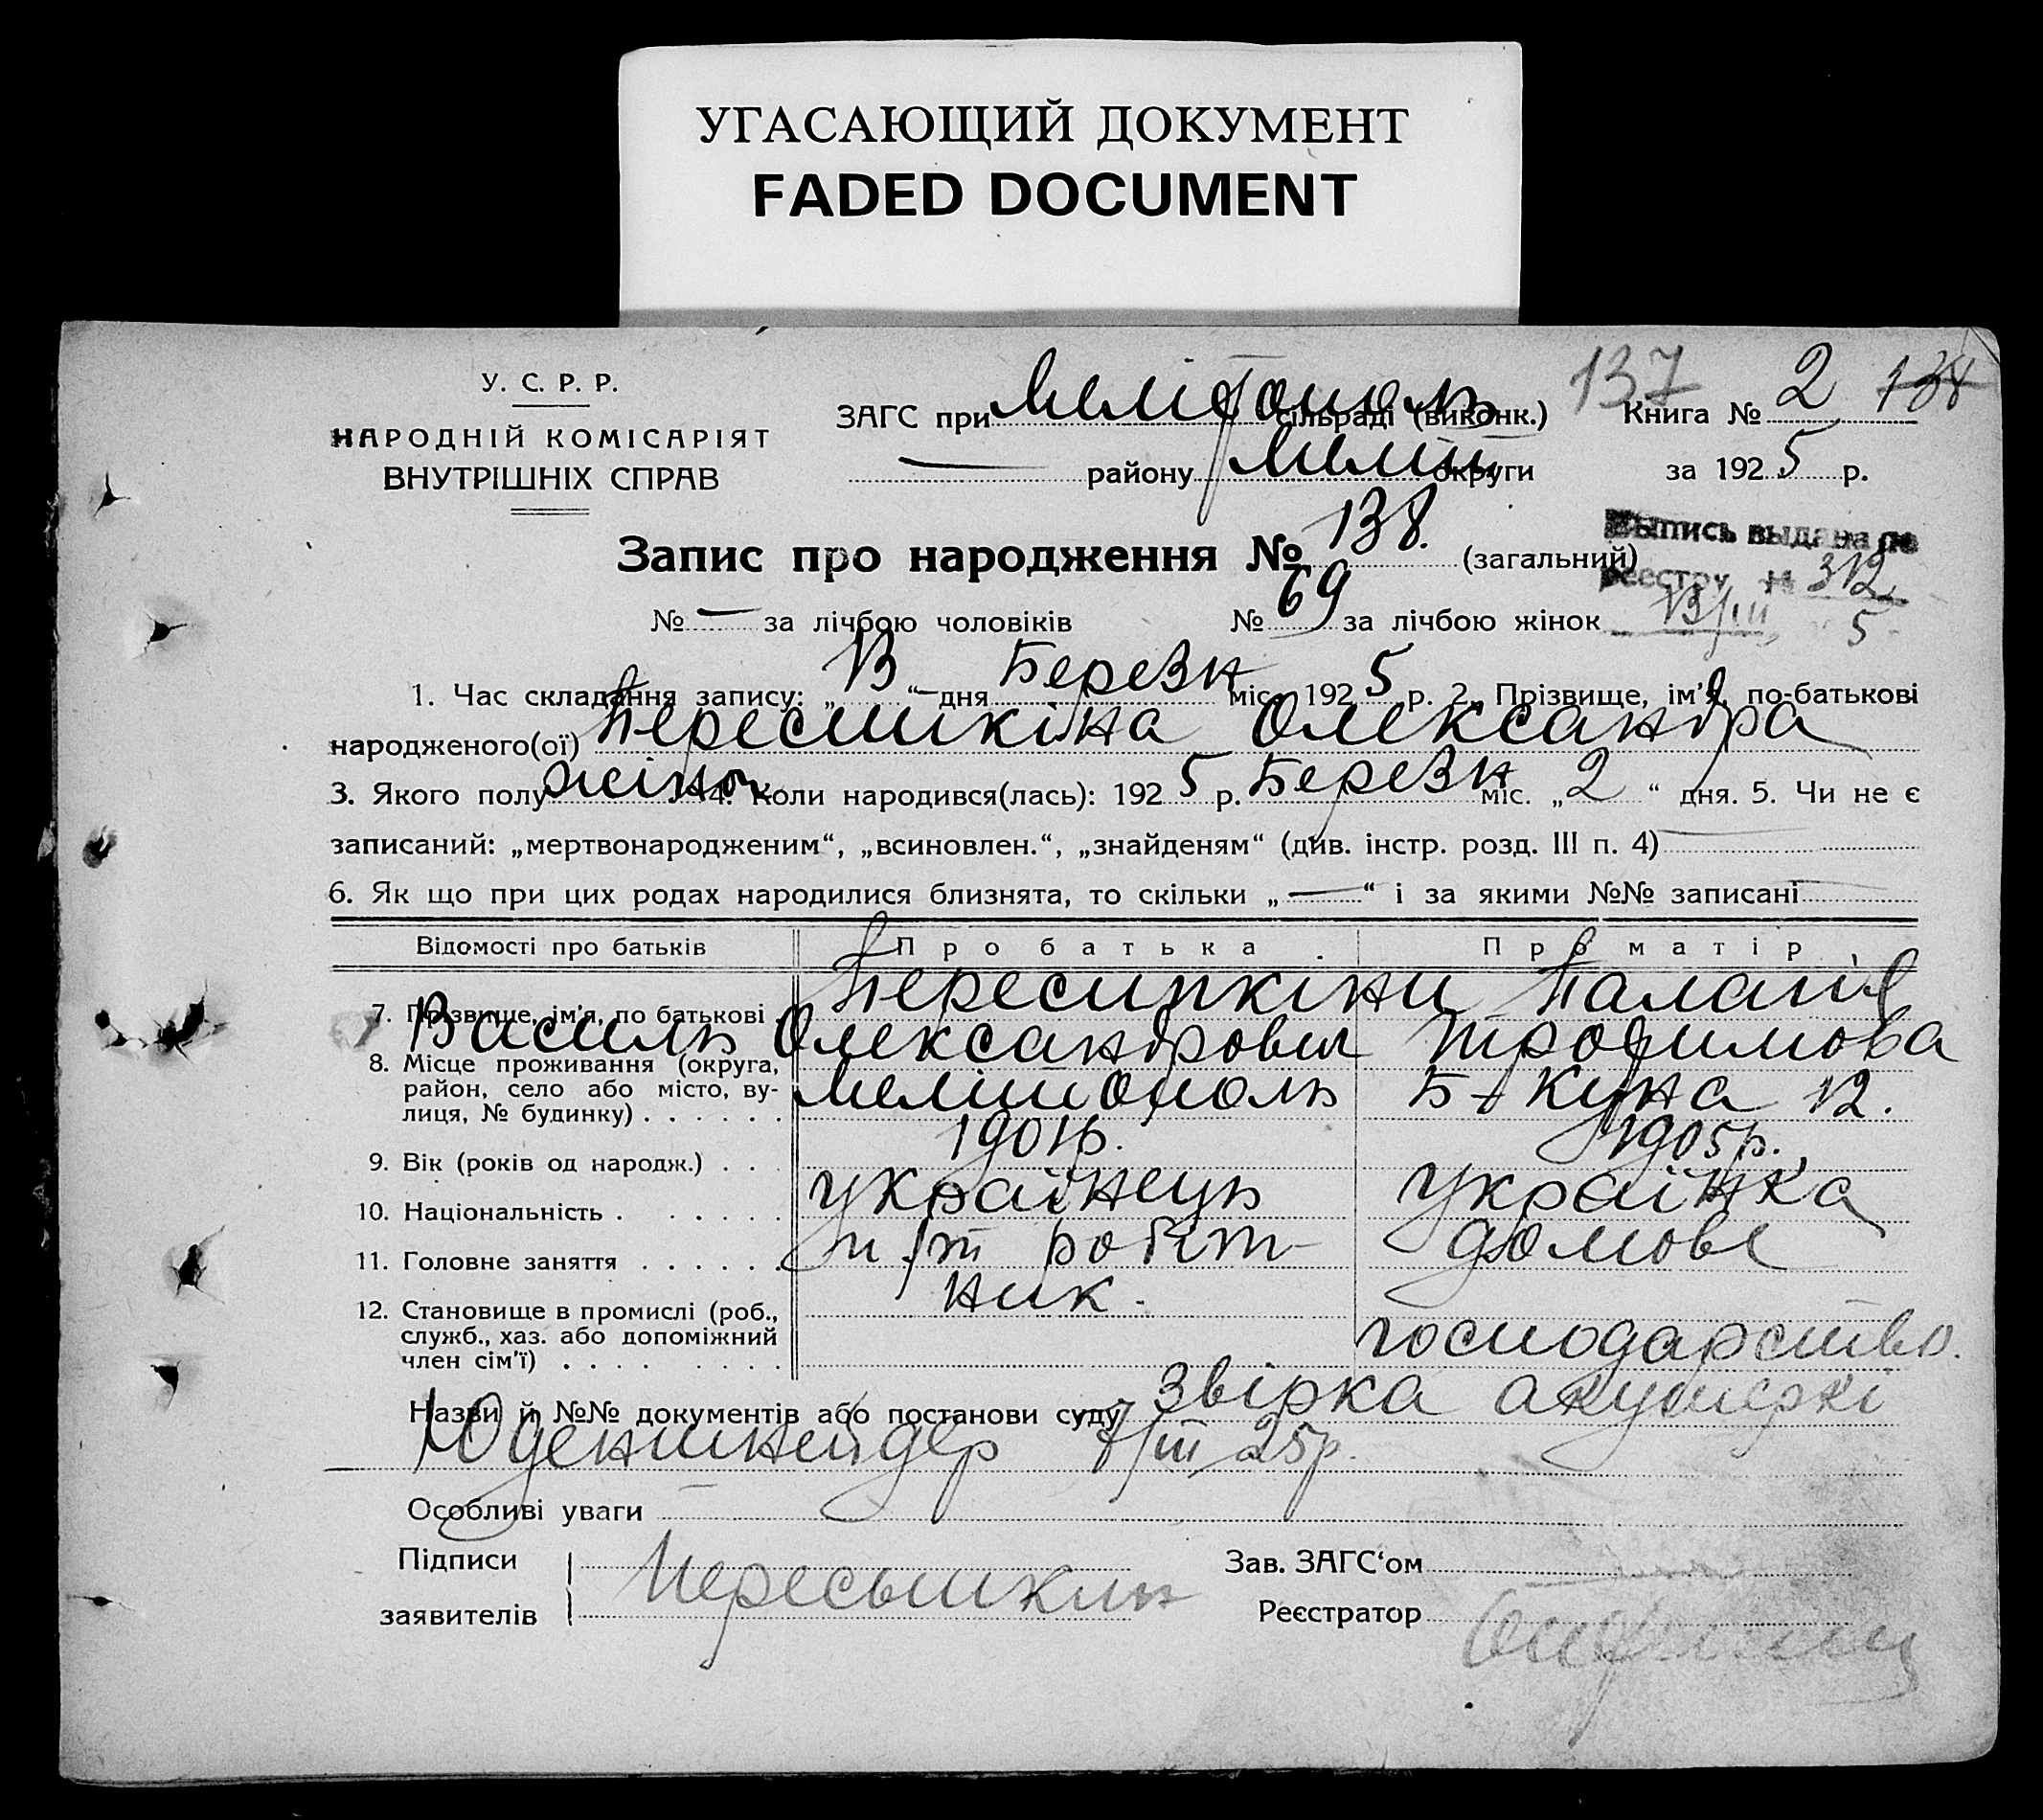 УГАСАЮЩИЙ ДОКУМЕНТ
FADED DOCUMENT
У. С. Р. Р.
НАРОДНІЙ КОМІСАРІЯТ
ВНУТРІШНІХ СПРАВ
ЗАГС при Мелітополь сільраді (виконк.)
137 Книга № 2 138
— району Меліт округи за 1925 р.
Запис про народження № 138. (загальний)
Выпись выдана по
реестру № 312
13/III 5
№ — за лічбою чоловіків № 69 за лічбою жінок
1. Час складання запису: „13“ дня Березн міс. 1925 р. 2. Прізвище, ім'я, по-батькові
народженого(ої) Пересипкіна Олександра
3. Якого полу жіноч 4. Коли народився(лась): 1925 р. Березн міс. „2“ дня. 5. Чи не є
записаний: „мертвонародженим“, „всиновлен.“, „знайденям“ (див. інстр. розд. III п. 4) —
6. Як що при цих родах народилися близнята, то скільки „—“ і за якими №№ записані
Відомості про батьків Про батька Про матір
7. Прізвище, ім'я, по батькові Пересипкіни Палагія
Василь Олександрович Трофимова
8. Місце проживання (округа,
район, село або місто, ву-
лиця, № будинку) Мелітополь Б-Куна 12.
9. Вік (років од народж.) 1901р. 1905р.
10. Національність українець українка
11. Головне заняття робіт- домове
ник.
12. Становище в промислі (роб.,
служб., хаз. або допоміжний
член сім'ї) господарство.
Назви й №№ документів або постанови суду Звірка акушеркі
Юденшнейдер 7/III 25р.
Особливі уваги
Підписи
заявителів Пересыпкин
Зав. ЗАГС'ом
Реєстратор